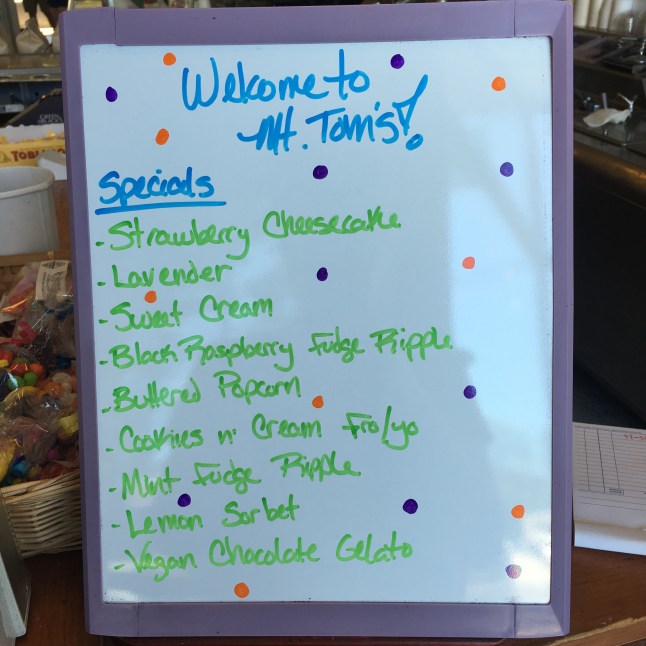 Welcome to
Mt. Tom's!
Specials
- Strawberry Cheesecake
- Lavender
- Sweet Cream
- Black Raspberry Fudge Ripple
- Buttered Popcorn
- Cookies n' Cream Fro/yo
- Mint Fudge Ripple
- Lemon Sorbet
- Vegan Chocolate Gelato
TOBL